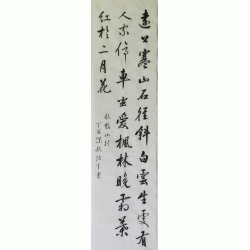 遠上寒山石徑斜白雲生處有
人家停車坐愛楓林晚霜葉
紅於二月花
杜牧山行
丁酉深秋書